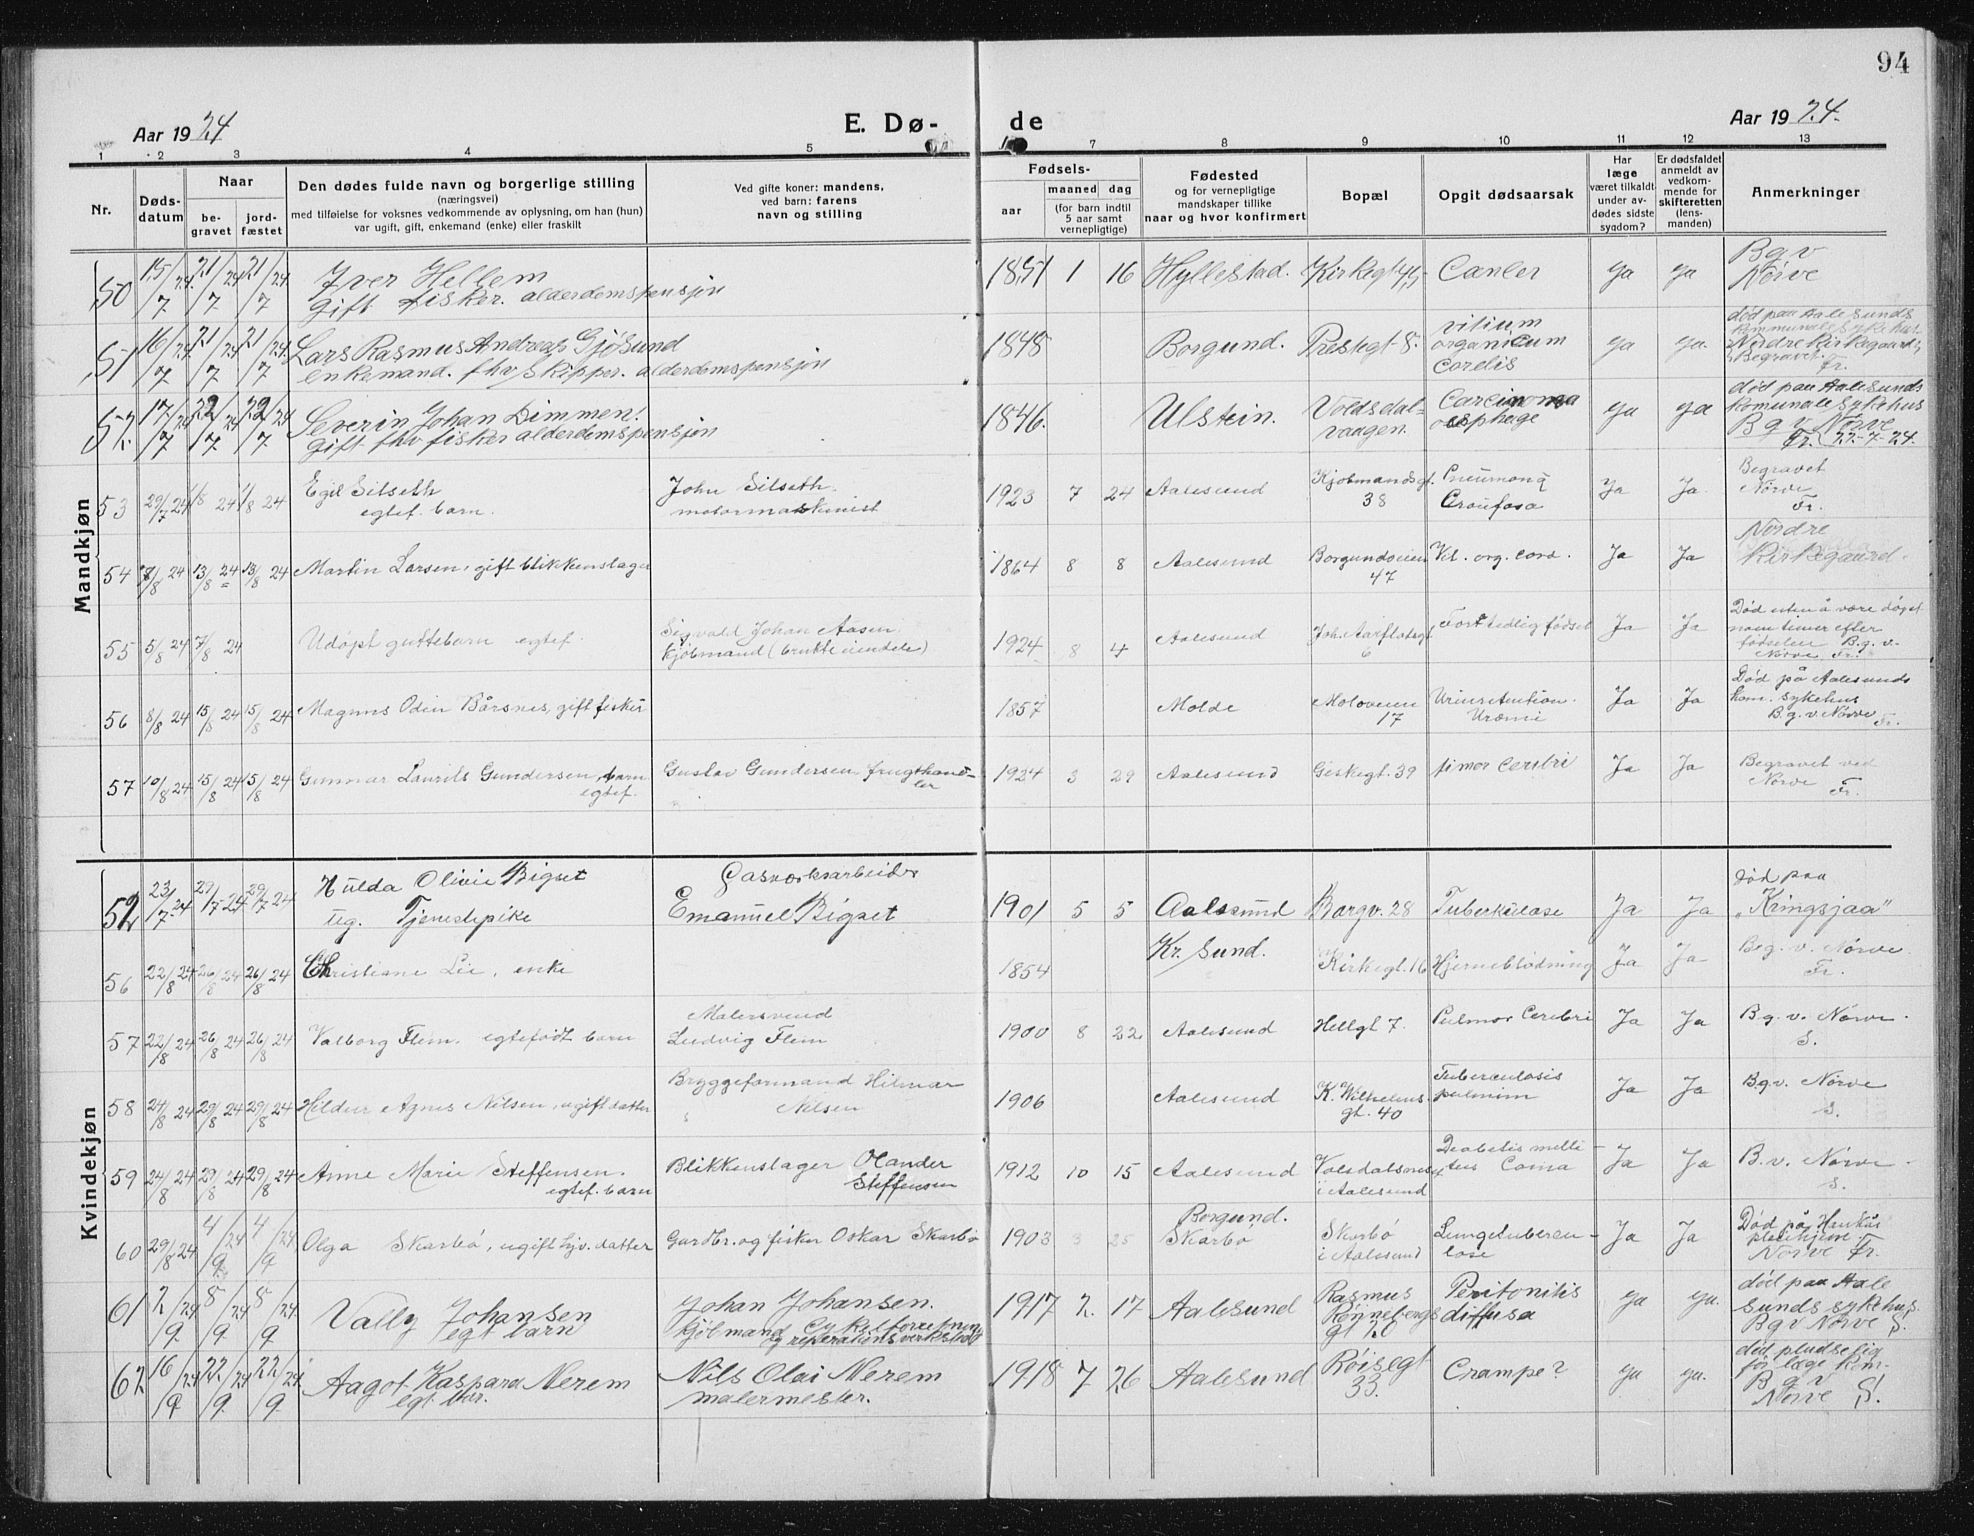 94
Aar 1924
E. Dø-
de
Aar 1924.
1 2 3 4 5 7 8 9 10 11 12 13
Nr.
Døds-
datum
Naar
be-
gravet
jord-
fæstet
Den dødes fulde navn og borgerlige stilling
(næringsvei)
med tilføielse for voksnes vedkommende av oplysning, om han (hun)
var ugift, gift, enkemand (enke) eller fraskilt
Ved gifte koner: mandens,
ved barn: farens
navn og stilling
Fødsels-
aar
maaned
dag
(for barn indtil
5 aar samt
vernepligtige)
Fødested
og for vernepligtige
mandskaper tillike
naar og hvor konfirmert
Bopæl
Opgit dødsaarsak
Har
læge
været tilkaldt
under av-
dødes sidste
sygdom?
Er dødsfaldet
anmeldt av
vedkom-
mende for
skifteretten
(lens-
manden)
Anmerkninger
Mandkjøn
50 15/7 24 21/7 24 21/7 24 Iver Hellem 1851 1 16 Hyllestad. Kirkegt 45 Cancer ya ya Bg v
gift fisker. alderdomspensjon Nörve
51 16/7 24 21/7 24 21/7 24. Lars Rasmus Andreas Gjøsund 1848 Borgund. Prestegt 8. vitium ya ya. død paa Aalesunds
enkemand. fhv skipper. alderdomspensjon organicum kommunale sykehus
cordis Nordre kirkegaard
Begravet.
Fr.
52 17/7 24 22/7 24 22/7 24 Severin Johan Dimmen. 1846. Ulstein. Voldsdal- Carcinoma ya ya død paa Aalesunds
gift fhv fisker alderdomspensjon vaagen. oesphage komunale sykehus
Bg v Nörve
Fr. 22-7-24.
53 29/7 24 1/8 24 1/8 24 Egil Silseth John Silseth. 1923 7 24 Aalesund Kjøbmandsgt. Pneumoni Ja Ja. Begravet
egtef. barn. motormaskinist 38 Croufosa Nörve
Fr.
54 8/8 24 13/8 24 13/8 24 Martin Larsen, gift blikkenslager 1864 8 8 Aalesund Borgundveien Vit. org. cord. Ja Ja Nordre
47 Kirkegaard.
55 5/8 24 7/8 24 Udøpt guttebarn egtef. Sigvald Johan Aasen 1924 8 4 Aalesund Joh. Aarflotsgt. For tidlig fødsel Ja Ja Død uten å være døpt
kjøbmand (brukte eiendele) 6 noen timer efter
fødselen B.g. v.
Nörve. Fr.
56 8/8 24 15/8 24 15/8 24 Magnus Odin Bårsnes, gift fisker 1857 Molde Moloveien Urinretention. Ja Ja Død på Aalesunds
17 Uræmi kom. sykehus
B.g. v. Nörve Fr.
57 10/8 24 15/8 24 15/8 24 Gunnar Laurits Gundersen, barn Gustav Gundersen frugthand- 1924 3 29 Aalesund Geskegt. 39 Ja Ja Begravet ved
egtef. ler Nörve
Fr.
Kvindekjøn
52 23/7 24 29/7 24 29/7 24 Hulda Olivie Bigset Gasverksarbeider 1901 5 5 Aalesund Borgv. 28 Tuberkulose Ja Ja død paa
ug. Tjenestepike Emanuel Bigset „Kringsjaa"
56 22/8 24 26/8 24 26/8 24 Christiane Lie, enke 1854 Kr. Sund. Kirkegt. 16 Hjerneblödning Ja Ja Beg. v. Nörve
Fr.
57 22/8 24 26/8 24 26/8 24 Valborg Flem. egtefødt barn Malersvend 1900 8 22 Aalesund Hellgt 7. Cerebri Ja Ja B.g. v. Nörve.
Ludvig Flem S.
58 24/8 24 29/8 24 29/8 24 Hildur Agnes Nilsen, ugift datter Bryggeformand Hilmar 1906 Aalesund K. Wilhelms Tuberculosis Ja Ja B.g.v. Nörve
Nilsen gt. 40 pulmim S.
59 24/8 24 29/8 24 29/8 24 Anne Marie Steffensen. Blikkenslager Olander 1912 10 15 Aalesund Volsdalsnes Deabetis melli- Ja Ja B.v. Nörve.
egtef. barn Steffensen i Aalesund tus Coma S.
60 29/8 24 4/9 24 4/9 24. Olga Skarbö, ugift hjv. datter Gardbr. og fisker Oskar Skarbö 1903 3 25 Borgund. Skarbö Lungetubercu- Ja Ja Død på Haukås
Skarbö i Aalesund lose pleiehjem.
Nörve Fr.
61 2/9 24 8/9 24 8/9 24. Vally Johansen Johan Johansen. 1917 2. 17 Aalesund Rasmus Peritonitis ya ya. død paa Aale
egt barn kjøbmand cykelforretning Rønnebergs diffusa sunds sykehus.
og reperationsverksted gt 20 Bg v Nörve S.
62 16/9 24 22/9 24 22/9 24. Aagot Kaspara Nerem Nils Olai Nerem 1918 7 26 Aalesund Röisegt Crampe? ya ya. død pludselig
egt bar. malermester. 33. før læge kom.
B g v
Nörve S.